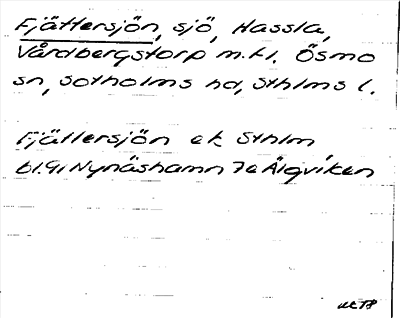 Fjättersjön, sjö, Hassla,
Vårdbergstorp m.fl. Ösmo
sn, Sotholms hd, Sthlms l.
Fjättersjön ek Sthlm
bl.91 Nynäshamn 7e Älgviken